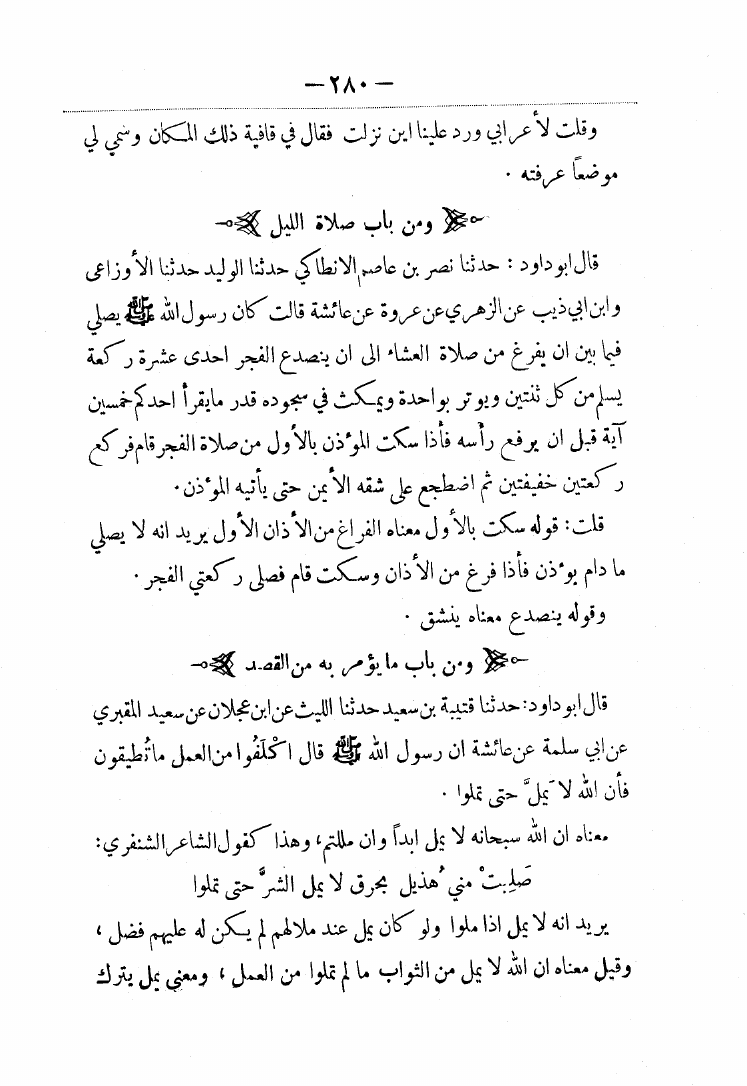 — ٢٨٠ —
وقلت لأعرابي ورد علينا اين نزلت فقال في قافية ذلك المكان وسمي لي
موضعاً عرفته .
ومن باب صلاة الليل
قال ابو داود : حدثنا نصر بن عاصم الانطاكي حدثنا الوليد حدثنا الأوزاعى
وابن ابي ذيب عن الزهري عن عروة عن عائشة قالت كان رسول الله ﷺ يصلي
فيما بين ان يفرغ من صلاة العشاء الى ان ينصدع الفجر احدى عشرة ركعة
يسلم من كل ثنتين ويوتر بواحدة ويمكث في سجوده قدر ما يقرأ احدكم خمسين
آية قبل ان يرفع رأسه فأذا سكت المؤذن بالأول من صلاة الفجر قام فركع
ركعتين خفيفتين ثم اضطجع على شقه الأيمن حتى يأتيه المؤذن.
قلت : قوله سكت بالأول معناه الفراغ من الأذان الأول يريد انه لا يصلي
ما دام يؤذن فأذا فرغ من الأذان وسكت قام فصلى ركعتي الفجر .
وقوله ينصدع معناه ينشق .
ومن باب ما يؤمر به من القصد
قال ابو داود : حدثنا قتيبة بن سعيد حدثنا الليث عن ابن عجلان عن سعيد المقبري
عن ابي سلمة عن عائشة ان رسول الله ﷺ قال اكْلَفُوا من العمل ما تُطيقون
فأن الله لا يَملَّ حتى تملوا .
معناه ان الله سبحانه لا يمل ابداً وان مللتم، وهذا كقول الشاعر الشنفري :
صَلِبتْ مني هُذيل بخرق لا يمل الشرَّ حتى تملوا
يريد انه لا يمل اذا ملوا ولو كان يمل عند ملالهم لم يكن له عليهم فضل ،
وقيل معناه ان الله لا يمل من الثواب ما لم تملوا من العمل ، ومعنى يمل يترك